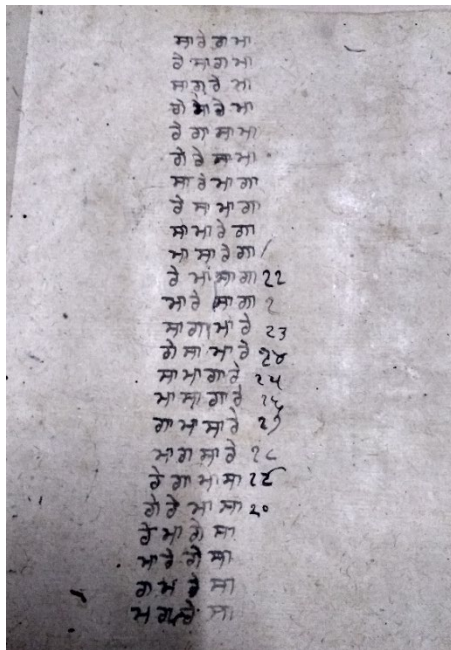 ਸਾ ਰੇ ਗਾ ਮਾ
ਰੇ ਸਾ ਗਾ ਮਾ
ਸਾ ਗਾ ਰੇ ਮਾ
ਗੇ ਸਾ ਰੇ ਮਾ
ਰੇ ਗਾ ਸਾ ਮਾ
ਗੇ ਰੇ ਸਾ ਮਾ
ਸਾ ਰੇ ਮਾ ਗਾ
ਰੇ ਸਾ ਮਾ ਗਾ
ਸਾ ਮਾ ਰੇ ਗਾ
ਮਾ ਸਾ ਰੇ ਗਾ
ਰੇ ਮਾ ਸਾ ਗਾ
ਮਾ ਰੇ ਸਾ ਗਾ
ਸਾ ਗਾ ਮਾ ਰੇ ੨੩
ਗੇ ਸਾ ਮਾ ਰੇ
ਸਾ ਮਾ ਗਾ ਰੇ
ਮਾ ਸਾ ਗਾ ਰੇ
ਗਾ ਮਾ ਸਾ ਰੇ
ਮਾ ਗ ਸਾ ਰੇ
ਰੇ ਗਾ ਮਾ ਸਾ
ਗੇ ਰੇ ਮਾ ਸਾ ੨੦
ਰੇ ਮਾ ਗੇ ਸਾ
ਮਾ ਰੇ ਗੇ ਸਾ
ਗ ਮ ਰੇ ਸਾ
ਮ ਗ ਰੇ ਸਾ